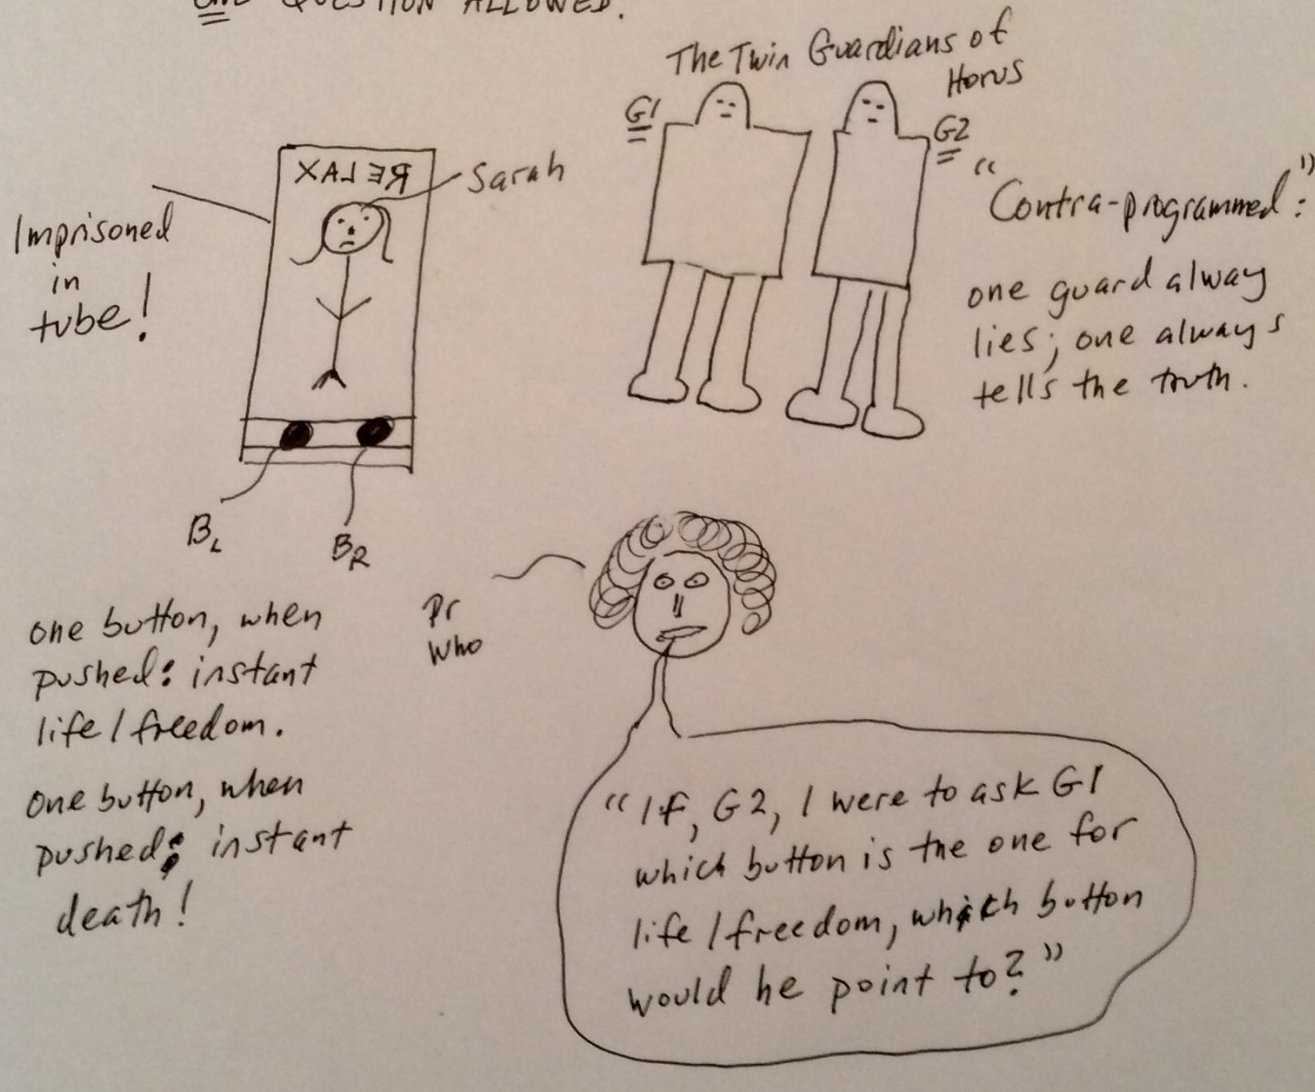 ONE QUESTION ALLOWED.
The Twin Guardians of
Horus
G1
G2
RELAX
Sarah
Imprisoned
in
tube!
"Contra-programmed":
one guard alway
lies; one always
tells the truth.
BL
BR
one button, when
pushed: instant
life/freedom.
One button, when
pushed: instant
death!
Dr
Who
"If, G2, I were to ask G1
which button is the one for
life/freedom, which button
would he point to?"